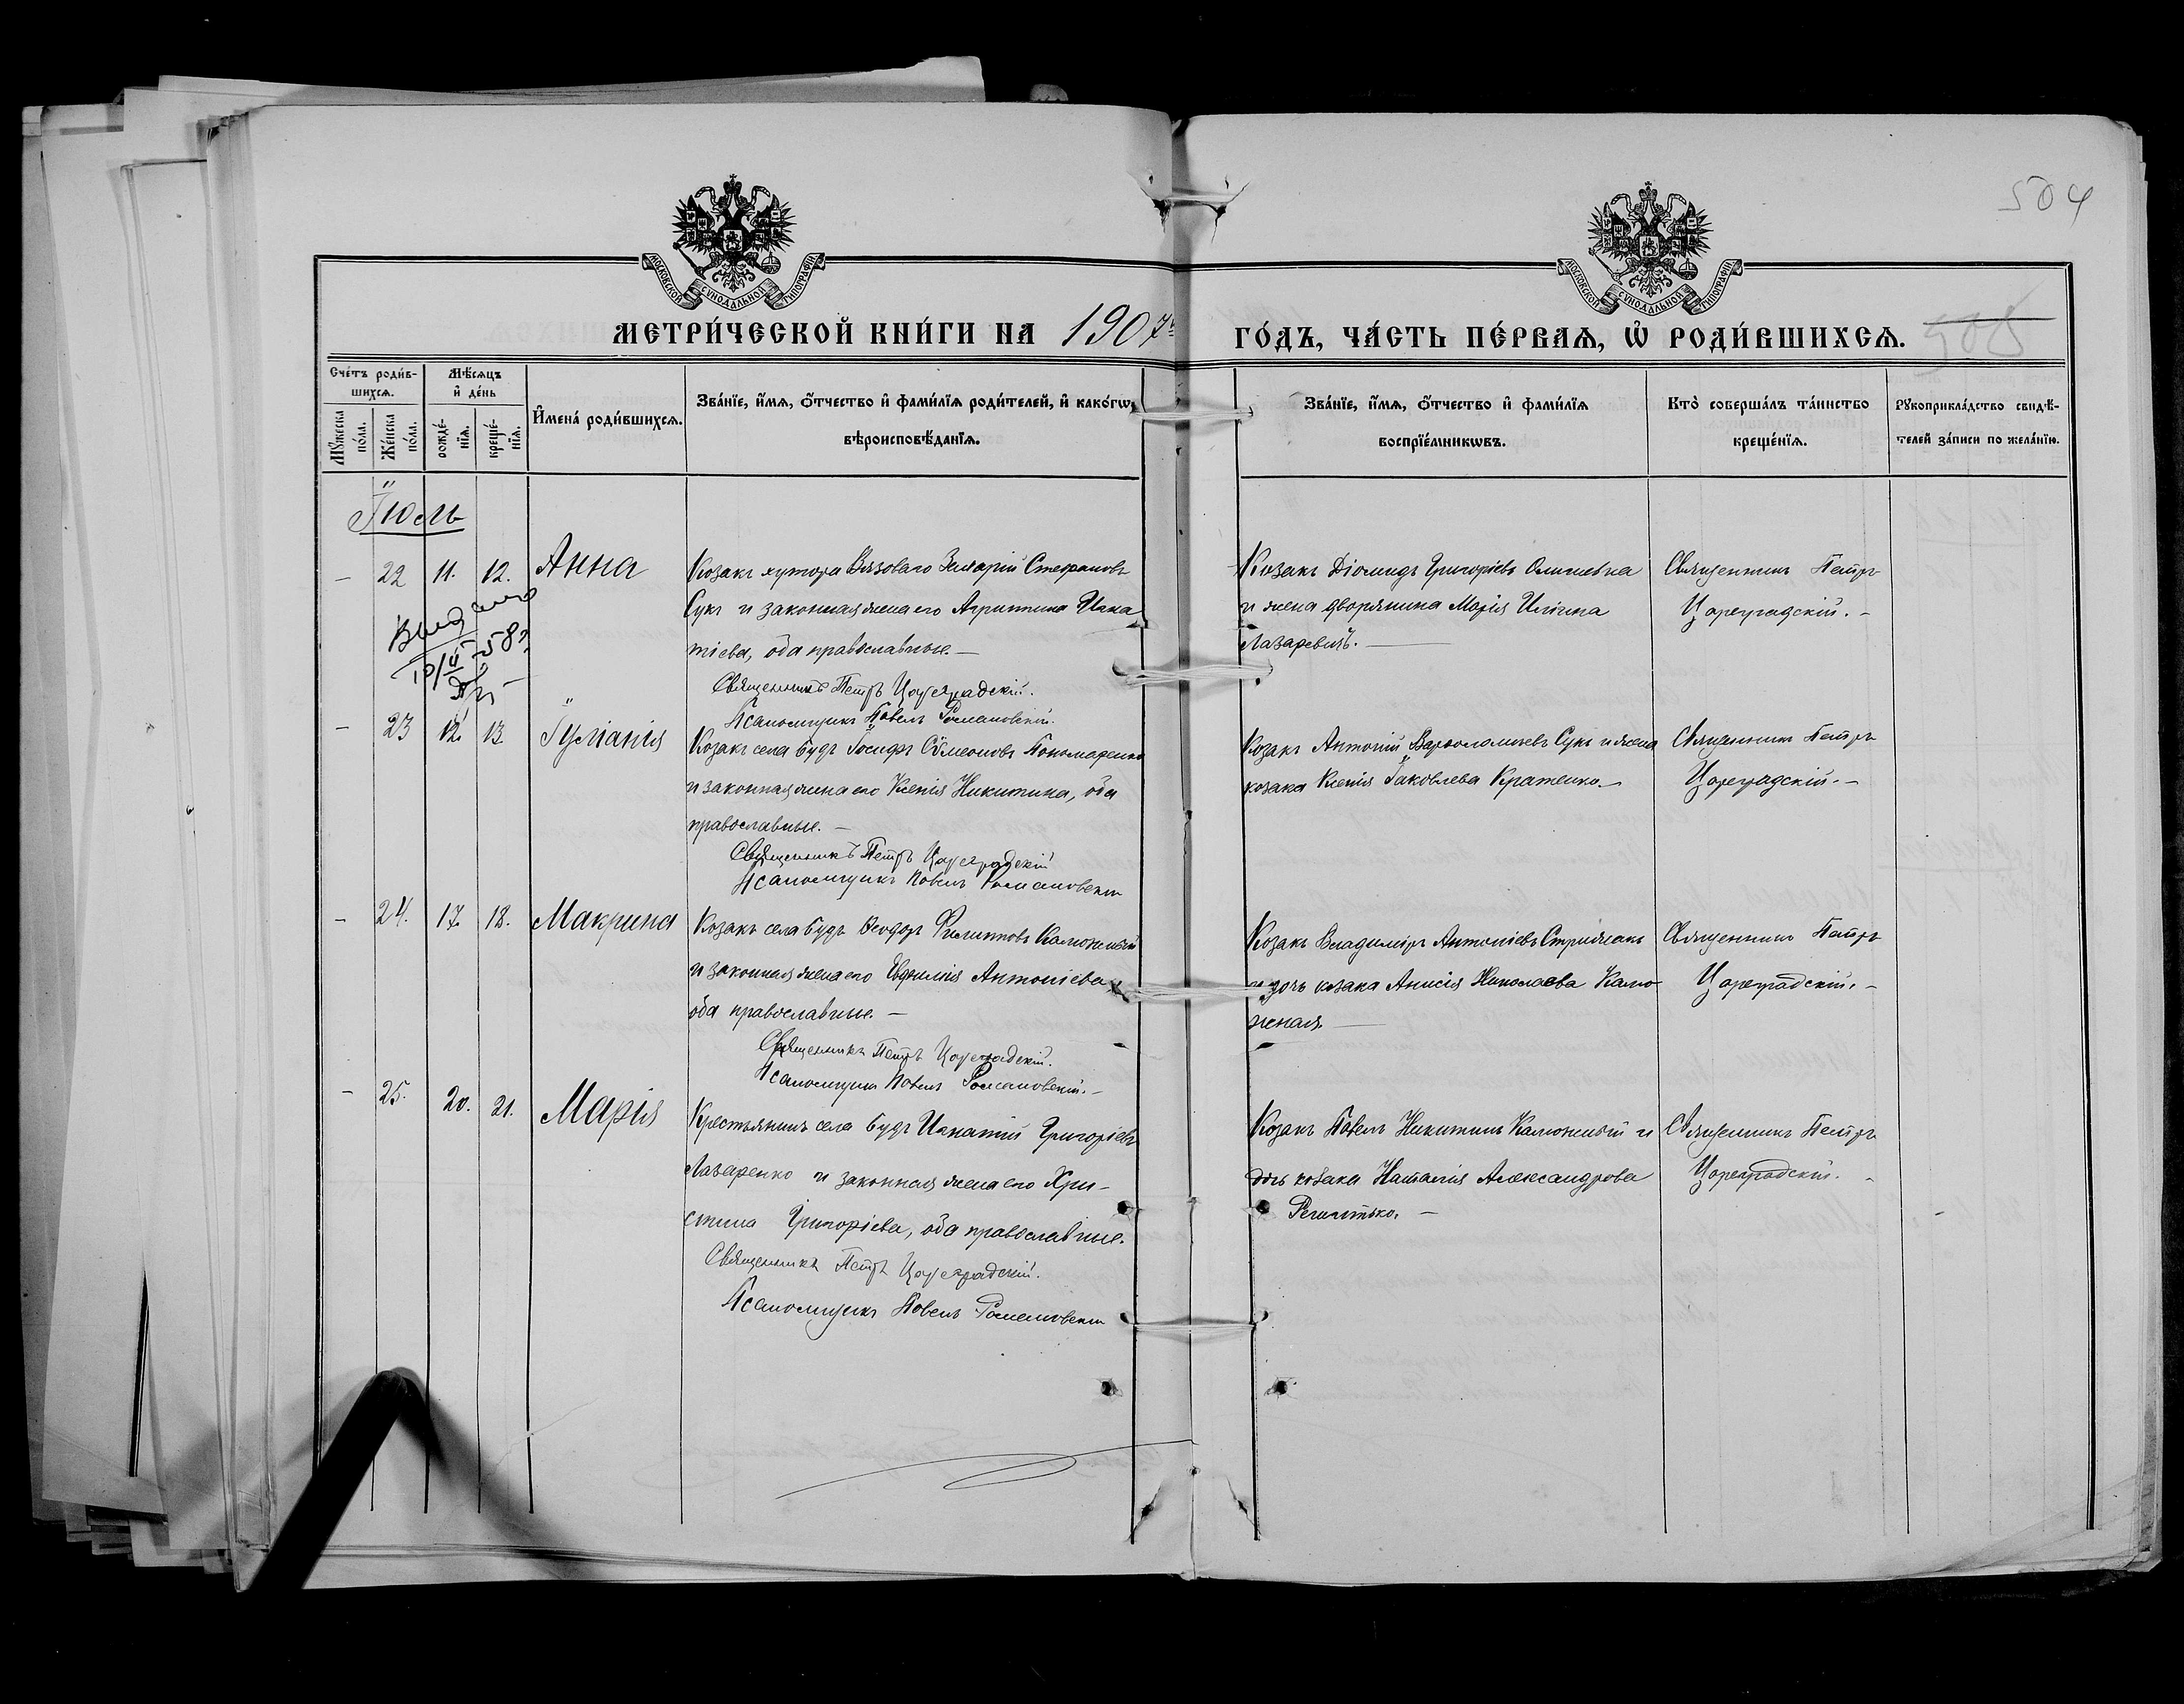 504
МОСКОВСКОЙ СѴНОДАЛЬНОЙ ТИПОГРАФІИ
МОСКОВСКОЙ СѴНОДАЛЬНОЙ ТИПОГРАФІИ
МЕТРИ́ЧЕСКОЙ КНИ́ГИ НА 1907й ГО́ДЪ, ЧА́СТЬ ПЕ́РВАѦ, Ѡ҆ РОДИ́ВШИХСѦ.
505
Сче́тъ роди́в-
шихсѧ.
Мꙋ́жеска
по́ла.
Же́нска
по́ла.
Мѣ́сѧцъ
и҆ де́нь
рожде́-
нїѧ.
креще́-
нїѧ.
И҆мена̀ роди́вшихсѧ.
Зва́нїе, и҆́мѧ, ѻ҆́тчество и҆ фами́лїѧ роди́телей, и҆ како́гѡ
вѣроисповѣ́данїѧ.
Зва́нїе, и҆́мѧ, ѻ҆́тчество и҆ фами́лїѧ
воспрїе́мникѡвъ.
Кто̀ соверша́лъ та́инство
креще́нїѧ.
Рꙋкоприкла́дство свидѣ́-
телей за́писи по жела́нїю.
Іюль
– 22 11. 12. Анна
Козакъ хутора Вязоваго Іларій Стефановъ
Сукъ и законная жена его Агриппина Игна
тіева, оба православные. –
Священникъ Петръ Цареградскій.
Псаломщикъ Павелъ Романовскій.
Козакъ Діомидъ Григоріевъ
и жена дворянина Марія Иліина
Лазаревичъ. –
Священникъ Петръ
Цареградскій. –
Выдано
58 г.
– 23 12. 13 Іуліанія
Козакъ села Будъ Іосифъ Сѵмеоновъ Пономаренко
и законная жена его Ксенія Никитина, оба
православные. –
Священникъ Петръ Цареградскій
Псаломщикъ Павелъ Романовскій
Козакъ Антоній Варѳоломіевъ Сукъ и жена
козака Ксенія Іаковлева Кратенко. –
Священникъ Петръ
Цареградскій. –
– 24. 17. 18. Макрина
Козакъ села Будъ Ѳеодоръ Филипповъ Калюжный
и законная жена его Евфимія Антоніева,
оба православные. –
Священникъ Петръ Цареградскій.
Псаломщикъ Павелъ Романовскій. –
Козакъ Владиміръ Антоніевъ Стрижакъ
и дочь козака Анисія Николаева Калю
жная. –
Священникъ Петръ
Цареградскій. –
– 25. 20. 21. Марія
Крестьянинъ села Будъ Игнатій Григоріевъ
Лазаренко и законная жена его Хри-
стина Григоріева, оба православные.
Священникъ Петръ Цареградскій.
Псаломщикъ Павелъ Романовскій
Козакъ Павелъ Никитинъ Калюжный и
дочь козака Наталія Александрова
Священникъ Петръ
Цареградскій. –